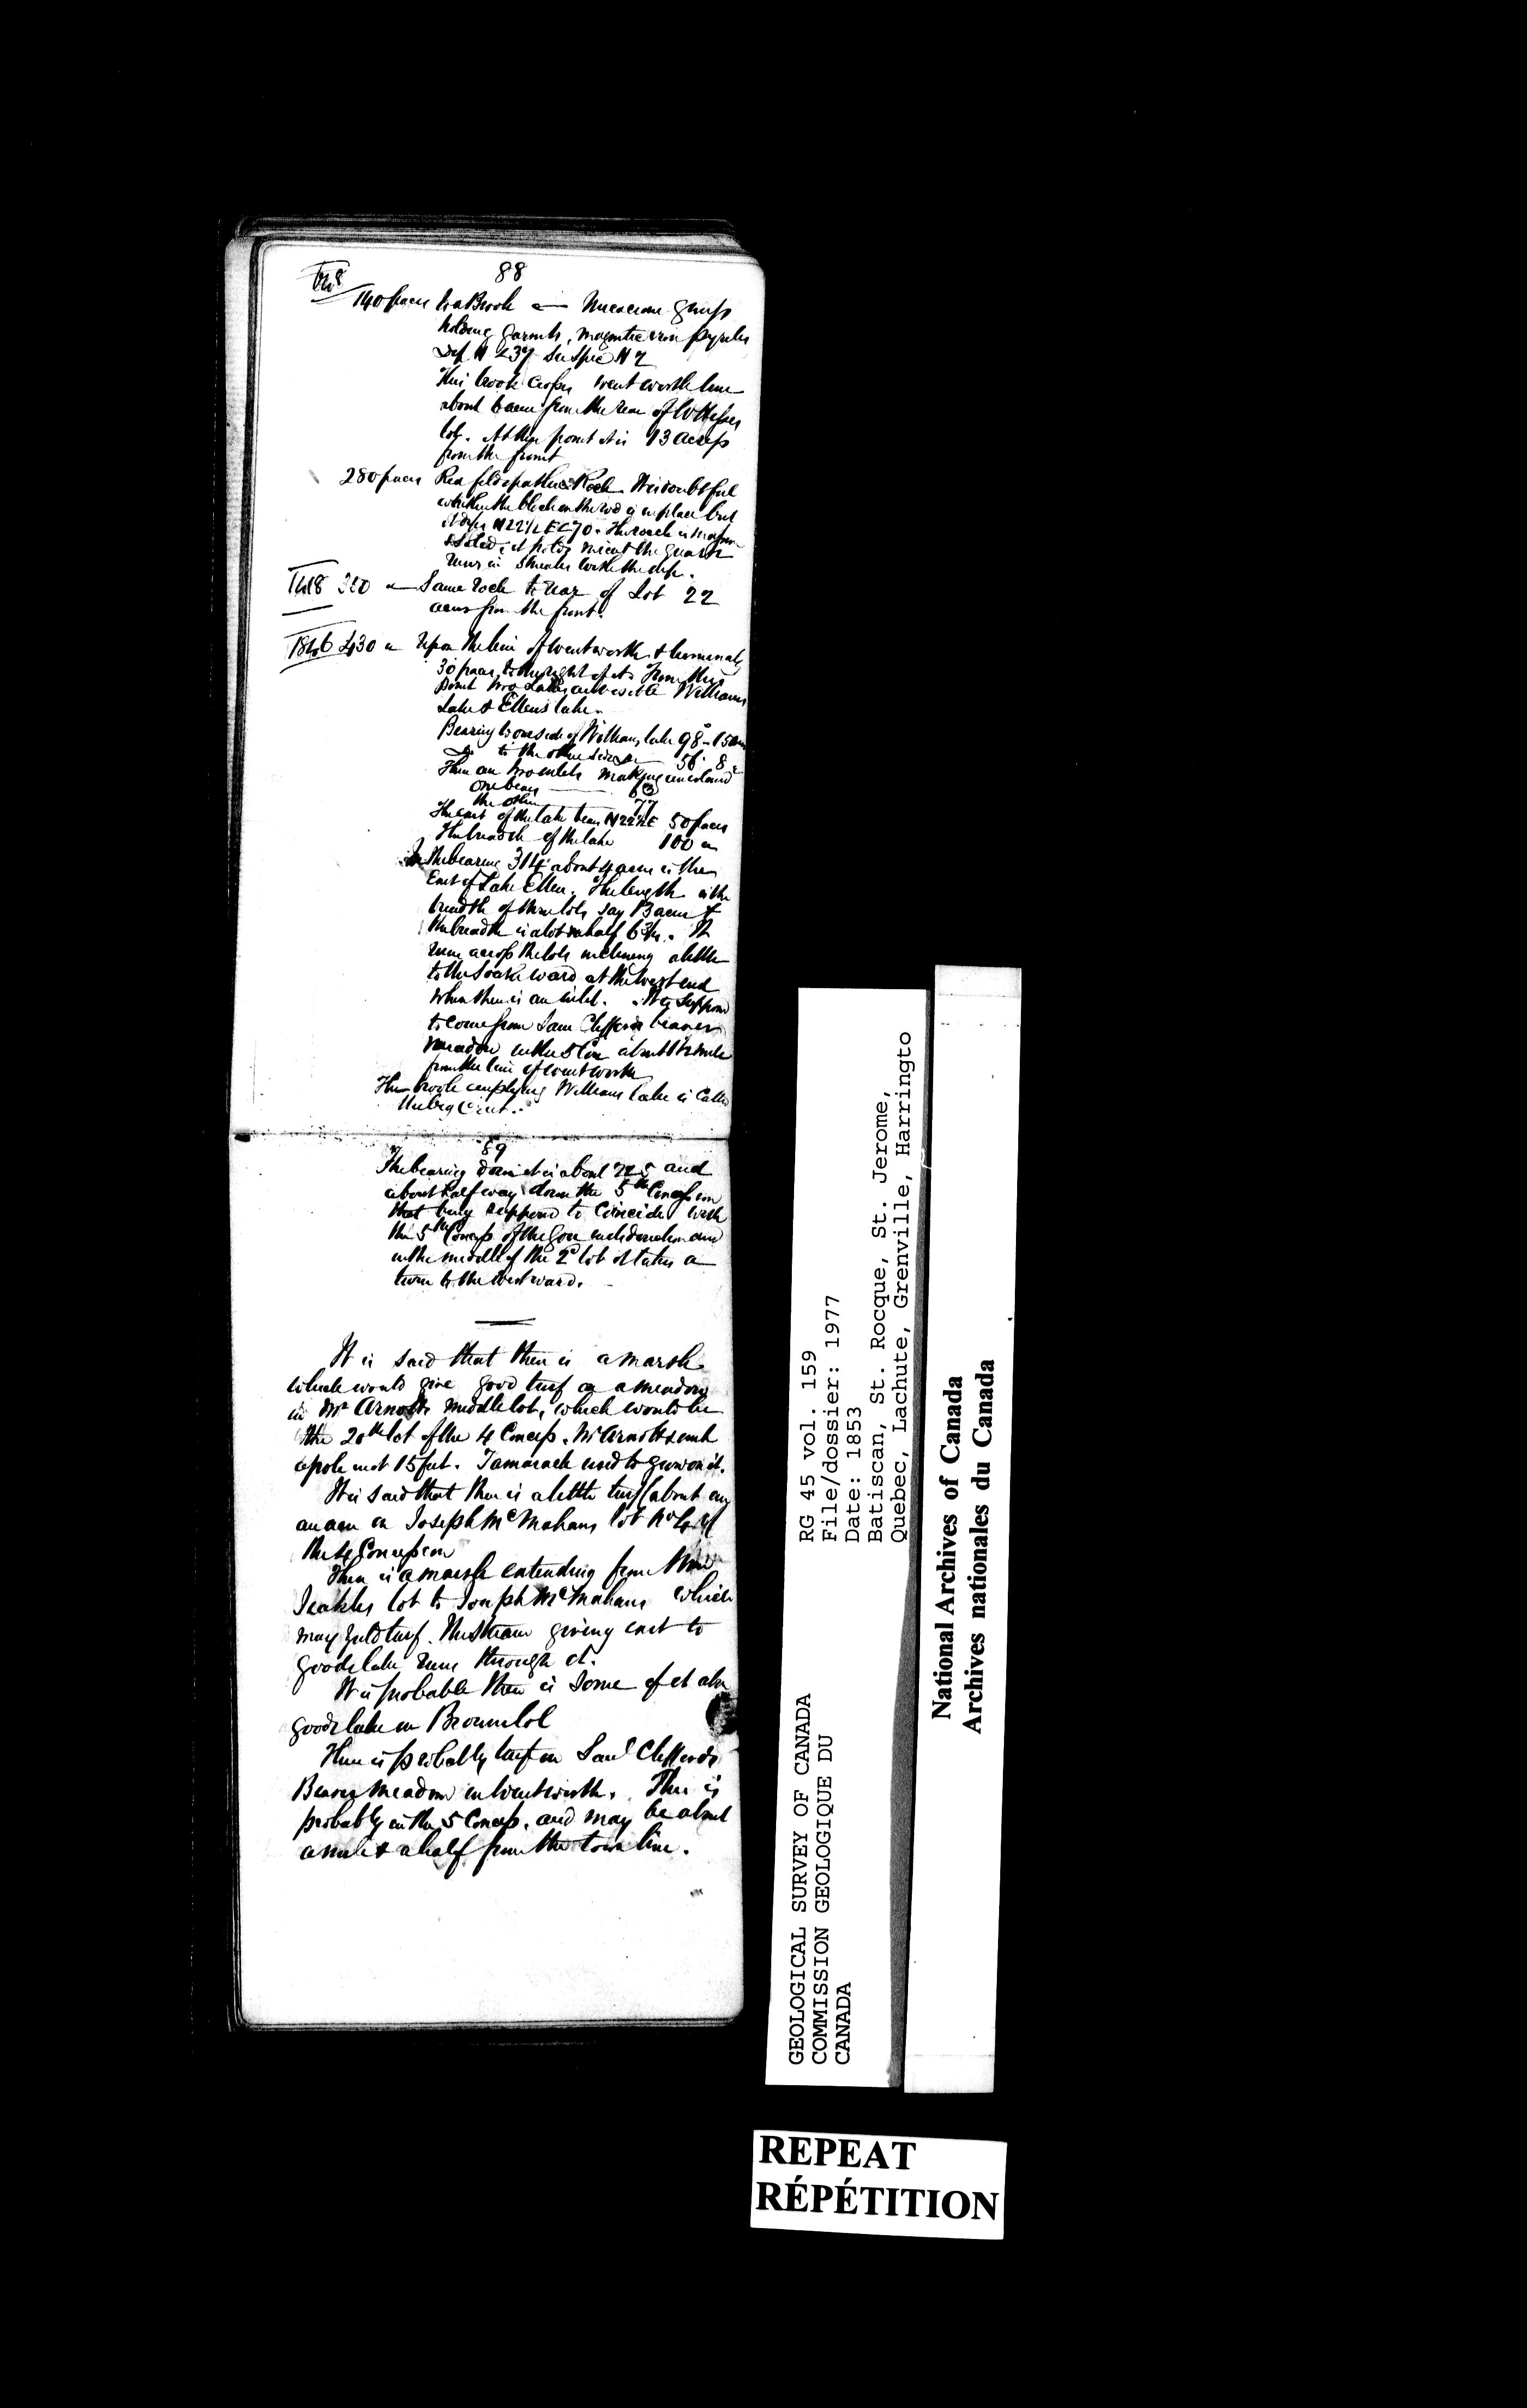 88
140 paces to a Brook — Micaceous gneiss
holding garnets, magnetic iron pyrites
Dip N
This brook crosses Wentworth line
about 6 acres from the rear of
lot. At this point it is 13 acres
from the front
280 paces Red feldspathic Rock. It is doubtful
whether the block on the road is in place but
it dips N 22½ E < 70. The rock is
the quartz
runs in with the dip.
320 — Same rock to rear of Lot 22
acres from the front.
430 Upon the line of Wentworth & terminates
30 paces to the right of it. From this
point two Lakes are visible Williams
Lake & Ellens lake.
Bearing to one side of Williams lake 98° - 15
Do to the other side 56 8
There are two inlets making an island
one bears
the other 77
The east of the lake bears N 22½ E 50 paces
The breadth of the lake 100
the bearing 314 about 4 acres is the
East of Lake Ellen. The length is the
breadth of three lots say 13 acres &
the breadth is a lot & a half 6¾. It
runs across the lots inclining a little
to the South ward at the West end
where there is an inlet. It is supposed
to come from Saml Cliffords beaver
meadow in the 5 Con about 1½ mile
from the line of Wentworth
The brook emptying Williams lake is called
the big
89
The bearing down it is about 225 and
about half way down the 5th Concession
that being supposed to coincide with
the 5th Concess of the Gore
in the middle of the 2d lot it takes a
turn to the West ward.
It is said that there is a marsh
which would give good turf on a meadow
in Mr Arnotts middle lot, which would be
the 20th lot of the 4 Concess. Mr Arnott sunk
a pole in it 15 feet. Tamarack used to grow on it.
It is said that there is a little turf (about
an acre on Joseph McMahans lot No
the 4 Concession
There is a marsh extending from
lot to Joseph McMahans which
may yield turf. The stream giving exit to
goods lake runs through it.
It is probable there is some of it
goods lake on Browns lot
There is probably turf on Saml Cliffords
Beaver meadow in Wentworth. This is
probably in the 5 Concess. and may be about
a mile & a half from the town line.
GEOLOGICAL SURVEY OF CANADA
COMMISSION GEOLOGIQUE DU
CANADA
RG 45 vol. 159
File/dossier: 1977
Date: 1853
Batiscan, St. Rocque, St. Jerome,
Quebec, Lachute, Grenville, Harringto
National Archives of Canada
Archives nationales du Canada
REPEAT
RÉPÉTITION